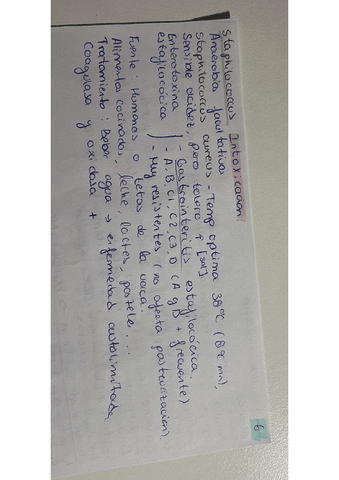 6
Staphilococcus Intoxicación:
Anaerobia facultativa
Staphilococcus aureus - Temp optima 38ºC (8ºC mn),
sensible acidez, pero tolera ↑ [sal]
Enterotoxina estafilocócica
- Gastrointeritis estafilocócica.
- A, B, C1, C2, C3, D (A y D + frecuente)
- Muy resistentes (no afecta pasteurización).
Fuente: Humanos o tetas de la vaca.
Alimentos cocinados, leche, lactes, pastele...
Tratamiento: Beber agua → enfermedad autolimitada
Coagulasa y oxidasa +